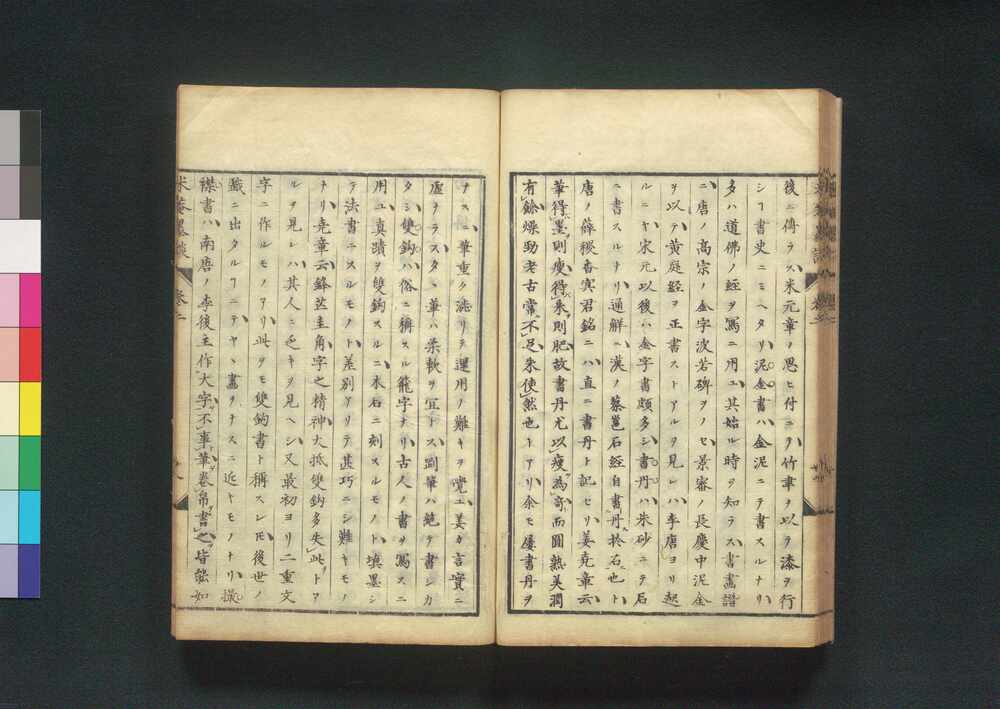 後ニ傳ラス米元章ノ思ヒ付ニヲ竹聿ヲ以ヲ漆ヲ行
シヿ書史ニミヘタリ泥金書ハ金泥ニテ書スルナリ
多ハ道佛ノ経ヲ冩ニ用ユ其始ル時ヲ知ラス書畫譜
ニ唐ノ高宗ノ金字波若碑ヲノセ景審ノ長慶中泥金
ヲ以テ黄庭経ヲ正書ストアルヲ見レハ李唐ヨリ起
ルニヤ宋元以後ハ金字書頗多シ書丹ハ朱砂ニテ石
ニ書スルナリ通解ニ漢ノ蔡邕石経自書丹扵石也ト
唐ノ薛稷杳㝠君銘ニハ直ニ書丹ト記セリ姜堯章云
筆得墨則瘦得朱則肥故書丹尤以瘦為竒而圓熟美潤
有餘燥勁老古常不足朱使然也トアリ余モ屢書丹ヲ
ナスニ筆重ク澁リテ運用ノ難キヲ覺ユ姜カ言實ニ
虚ヲラスタヽ筆ハ柔軟ヲ宜トス剛筆ハ絶テ書シカ
タシ雙鈎ハ俗ニ稱スル籠字ナリ古人ノ書ヲ冩スニ
用ユ真蹟ヲ雙鈎スルニ木石ニ刻スルモノト填墨シ
テ法書ニスルモノト差別アリテ甚巧ニシ難キモノ
ナリ堯章云鋒芒圭角字之精神大抵雙鈎多失此トア
ルヲ見レハ其人ニ乏キヲ見ヘシ又最初ヨリ二重文
字ニ作ルモノアリ此ヲモ雙鈎書ト稱スレㅌ後世ノ
戲ニ出タルヿニテヤヽ畫ヲナスニ近キモノナリ撮
襟書ハ南唐ノ李後主作大字不事筆卷帛書之皆能如
米菴墨談 卷二